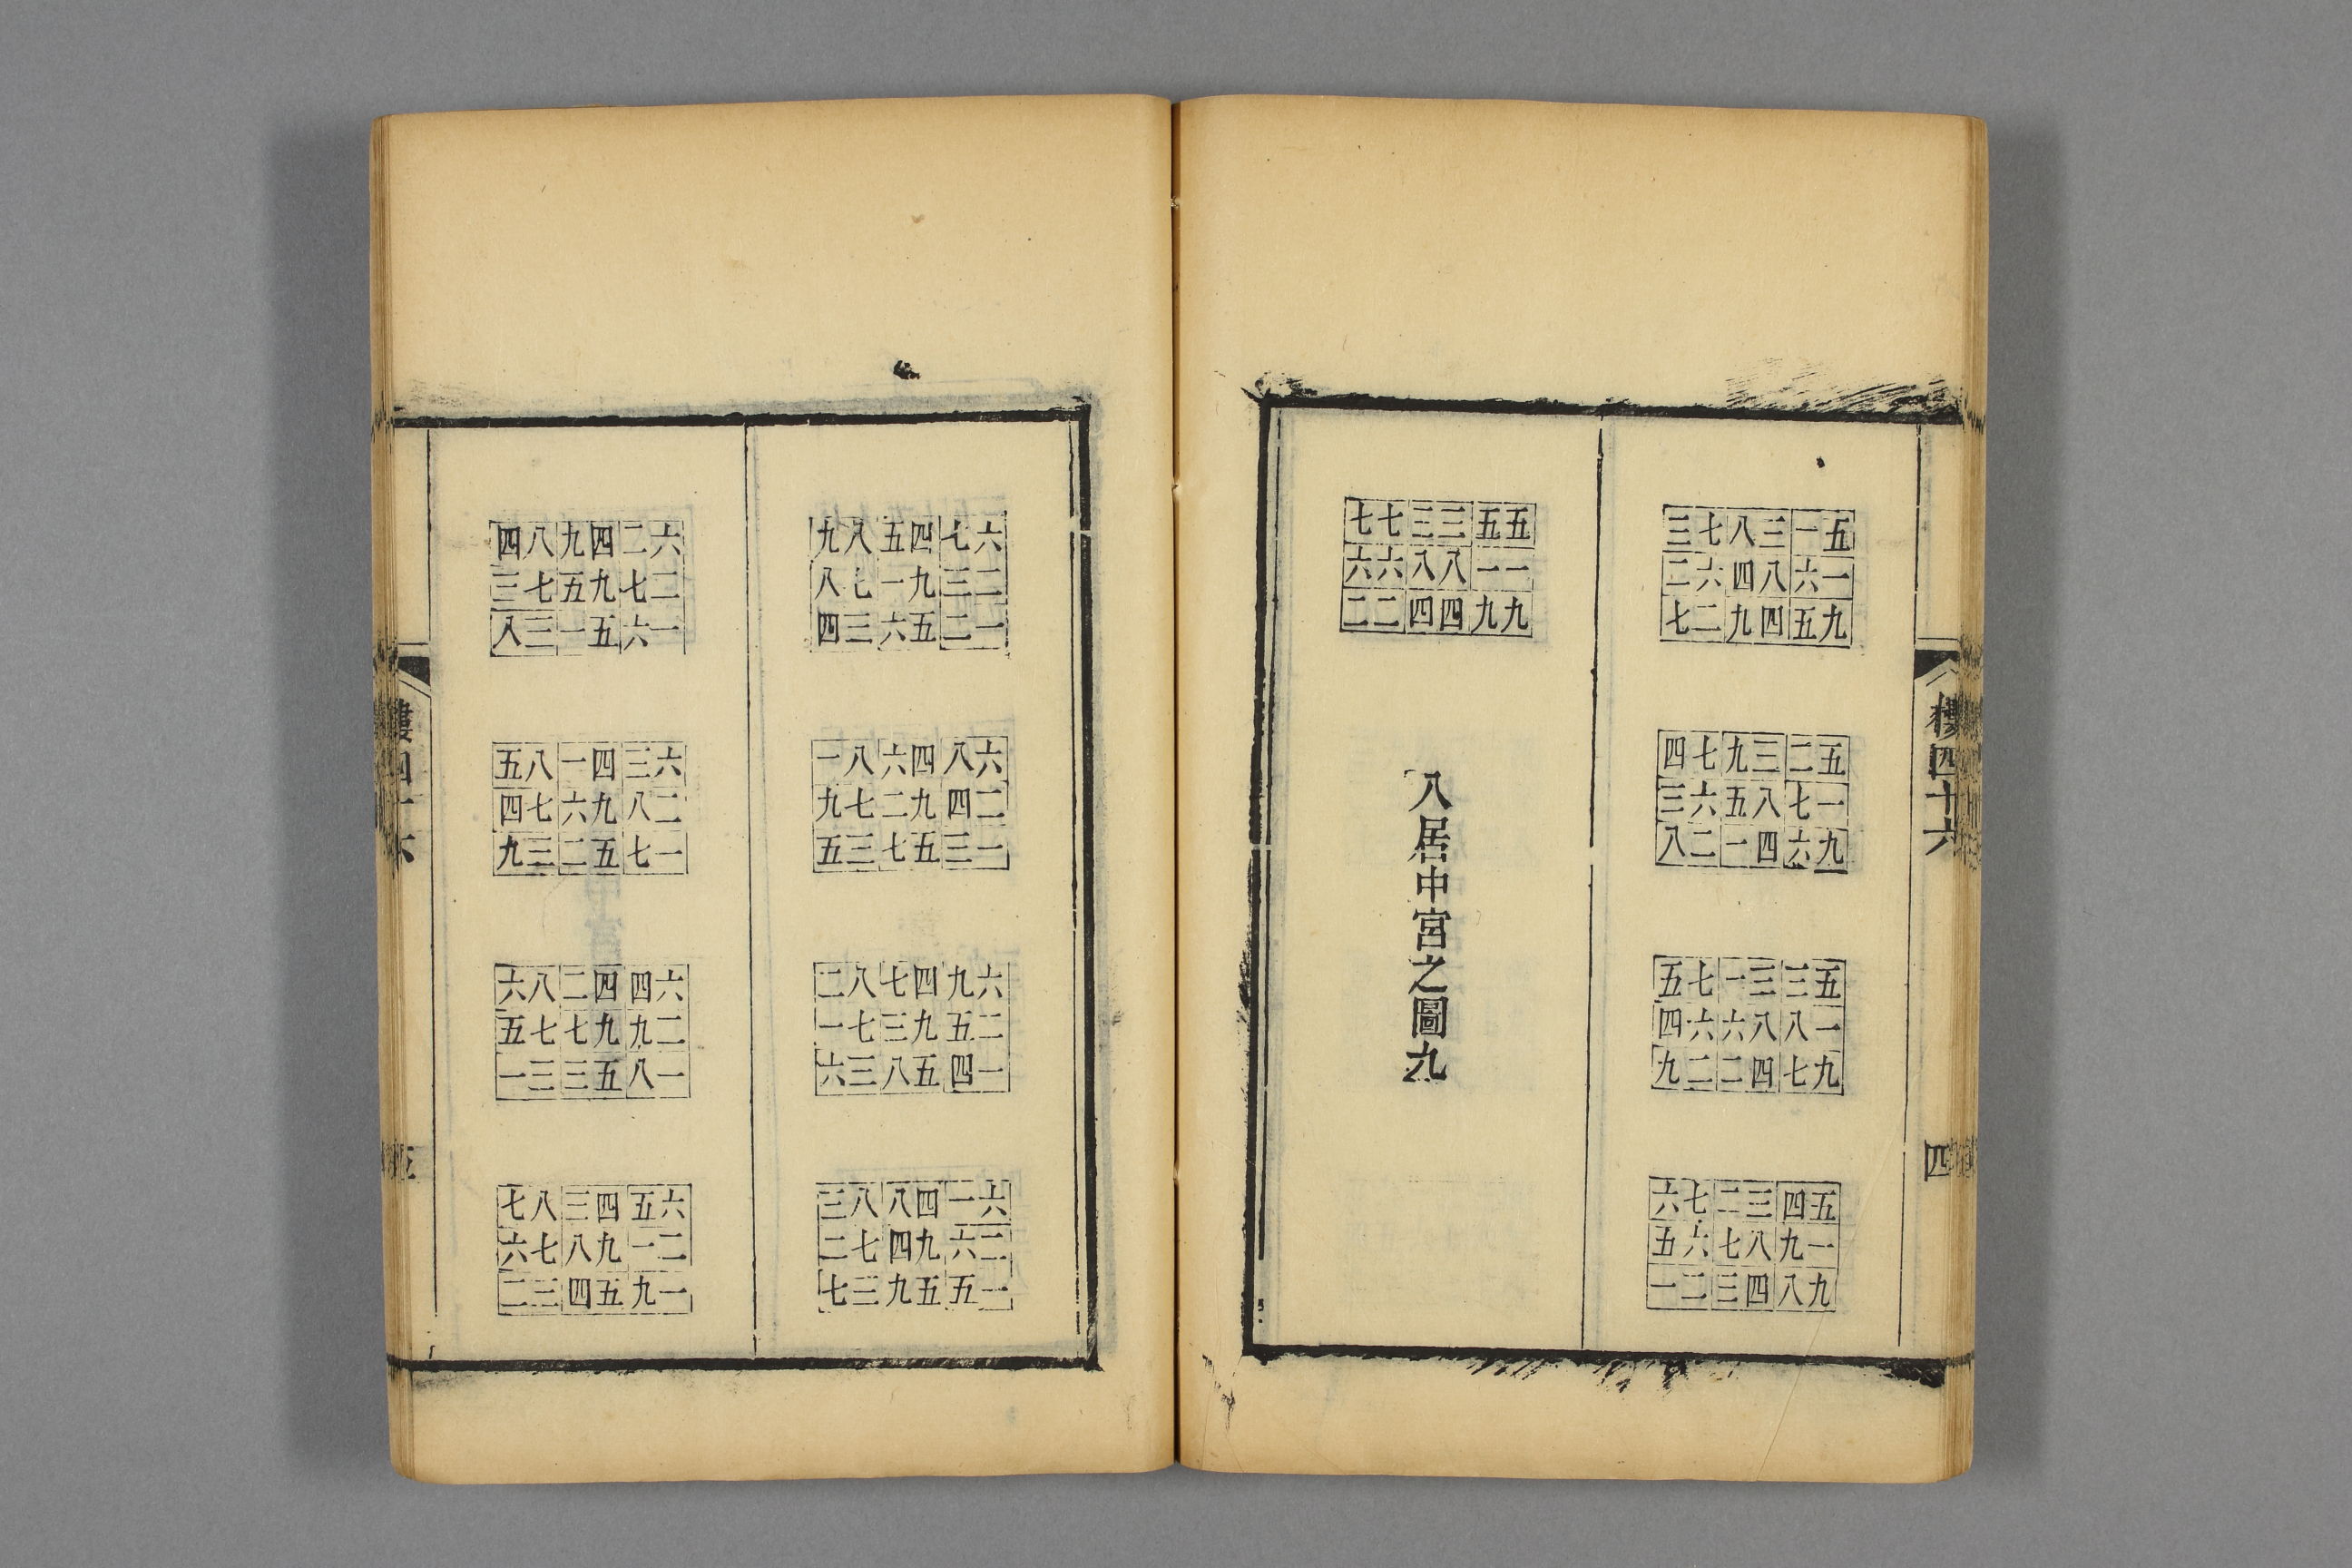 樓四十六
四
三七八三一五
二六四八六一
七二九四五九
四七九三二五
三六五八七一
八二一四六九
五七一三三五
四六六八八一
九二二四七九
六七二三四五
五六七八九一
一二三四八九
七七三三五五
六六八八一一
二二四四九九
八居中宮之圖九
九八五四七六
八七一九三二
四三六五二一
一八六四八六
九七二九四二
五三七五三一
二八七四九六
一七三九五二
六三八五四一
三八八四一六
二七四九六二
七三九五五一
四八九四二六
三七五九七二
八三一五六一
五八一四三六
四七六九八二
九三二五七一
六八二四四六
五七七九九二
一三三五八一
七八三四五六
六七八九一二
二三四五九一